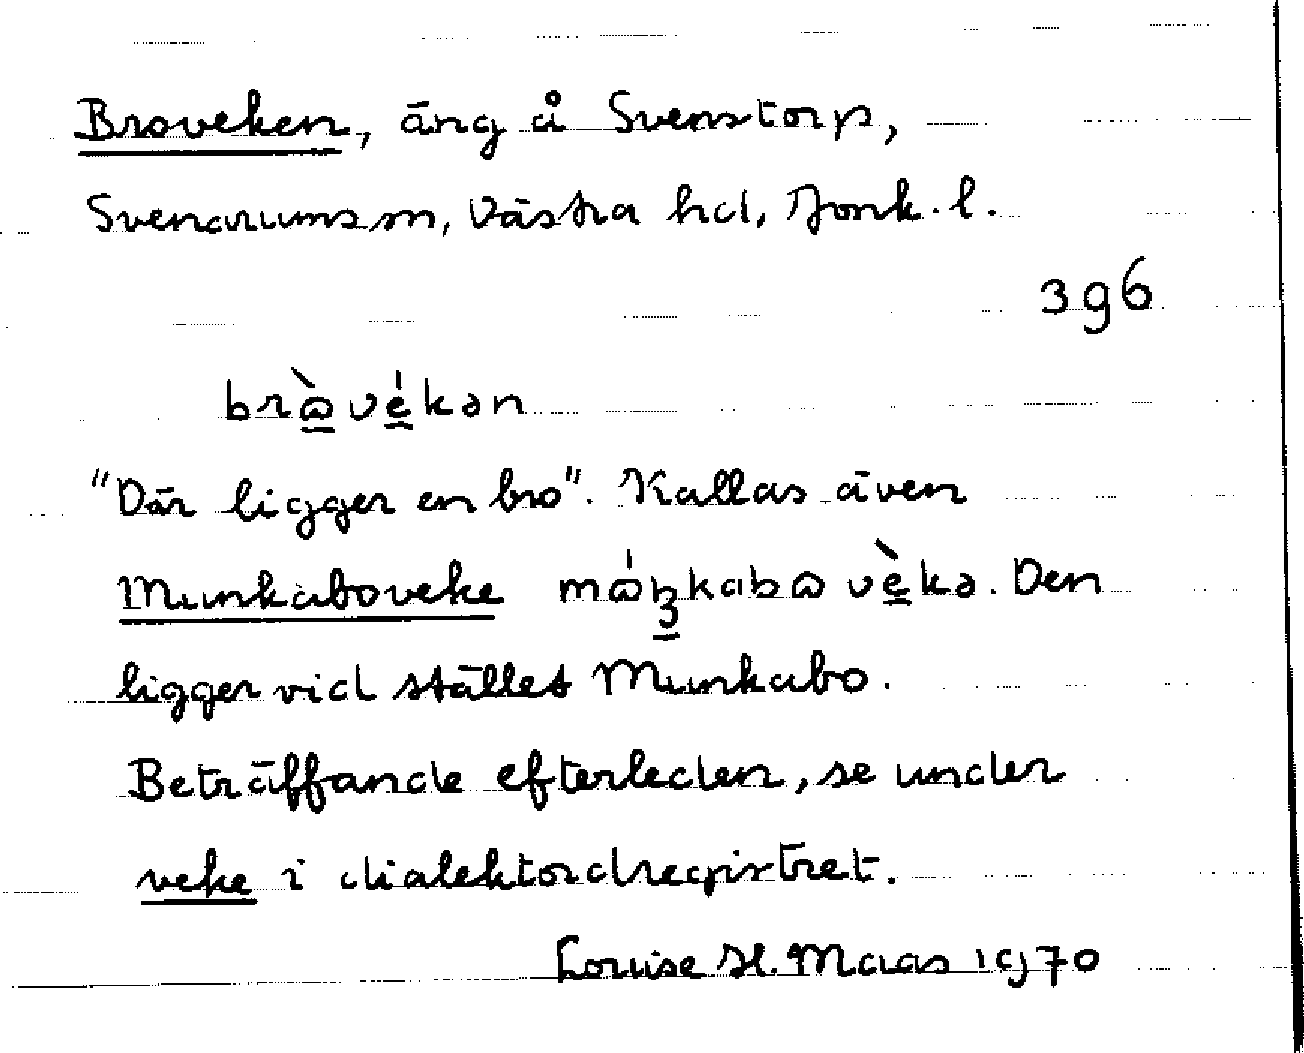 Broveken, äng å Svenstorp,
Svenarumsm, Västra hd, Jönk. l.
396
brɷ̀vékən
"Där ligger en bro". Kallas även
Munkaboveke mɷ́ŋkabɷ vèkə. Den
ligger vid stället Munkabo.
Beträffande efterleden, se under
veke i dialektordregistret.
Louise H. Maas 1970